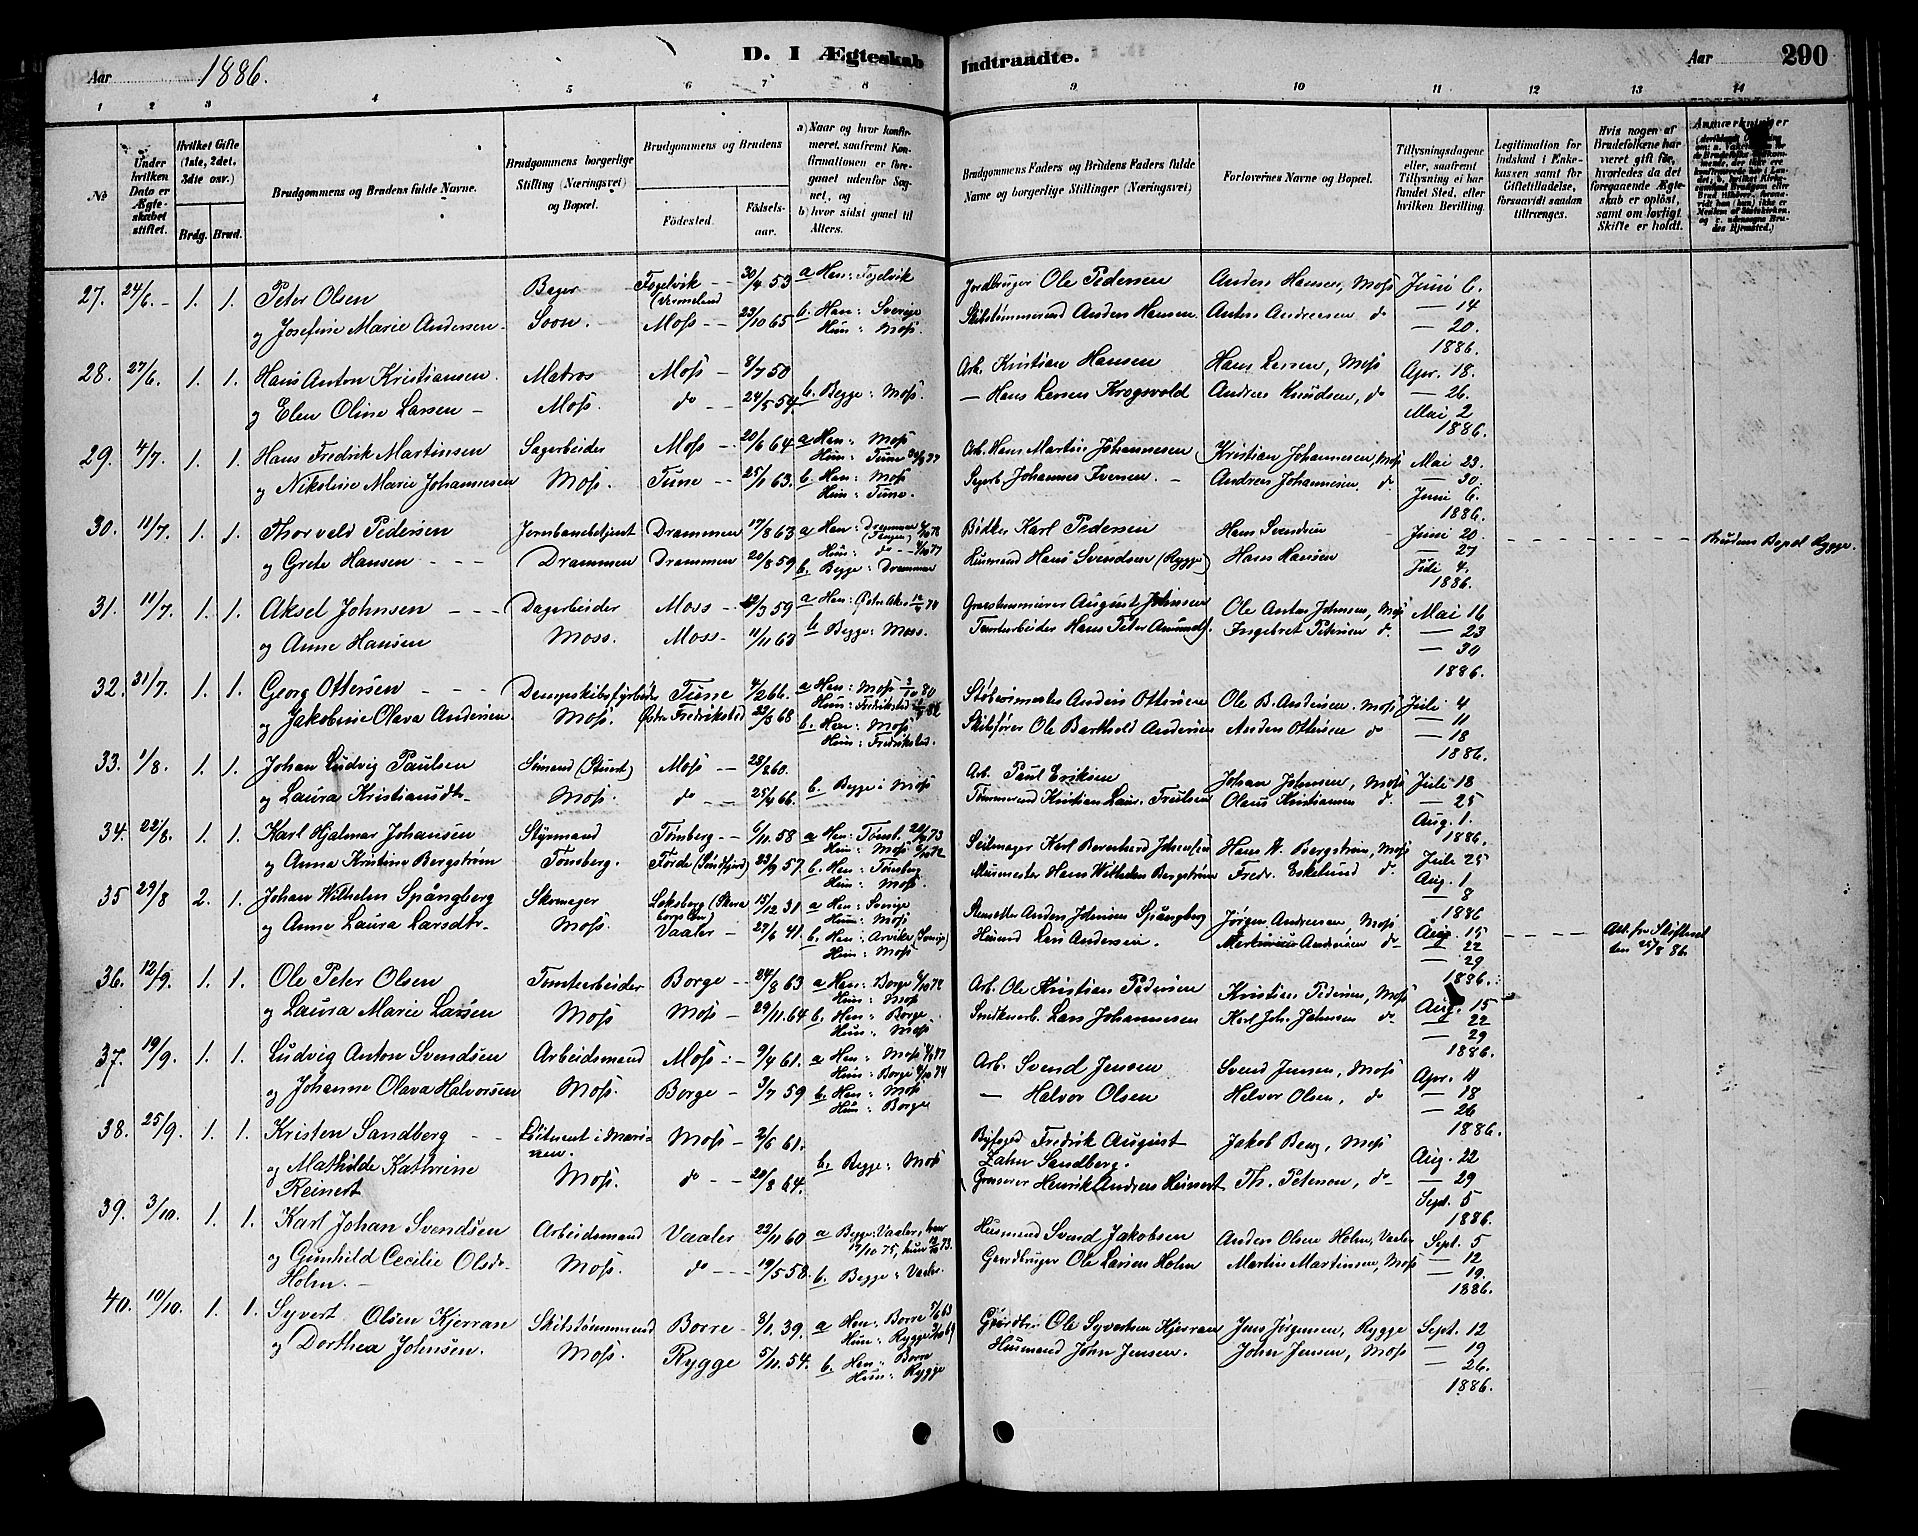 Aar 1886.
D. I Ægteskab Indtraadte.
Aar 290
1 2 3 4 5 6 7 8 9 10 11 12 13 14
No
Under hvilken Dato er Ægteskabet stiftet.
Hvilket Gifte (1ste, 2det, 3die osv.)
Brdg. Brud.
Brudgommens og Brudens fulde Navne.
Brudgommens borgerlige Stilling (Næringsvei) og Bopæl.
Brudgommens og Brudens
Födested.
Födselsaar.
a) Naar og hvor konfirmeret, saafremt Konfirmationen er foregaaet udenfor Sognet, og
b) hvor sidst gaaet til Alters.
Brudgommens Faders og Brudens Faders fulde Navne og borgerlige Stillinger (Næringsvei)
Forlovernes Navne og Bopæl.
Tillysningsdagene eller, saafremt Tillysning ei har fundet Sted, efter hvilken Bevilling.
Legitimation for Indskud i Enkekassen samt for Giftetilladelse, forsaavidt saadan tiltrænges.
Hvis nogen af Brudefolkene har været gift för, hvorledes da det foregaaende Ægteskab er oplöst, samt om lovligt Skifte er holdt.
Anmærkninger
27. 24/6. 1. 1. Peter Olsen Bager Fogelvik (Vermeland 30/4 53 a Han: Fogelvik Jordbruger Ole Pedersen Anders Hansen, Moss Juni 6.
og Josefine Marie Andersen Soon. Moss 23/10 65 b. Han: Sverige Hun: Moss. Skibstømmermand Anders Hansen Anton Andreasen do — 14
— 20.
1886.
28. 27/6. 1. 1. Hans Anton Kristiansen Matros Moss 8/7 50 Arb. Kristian Hansen Hans Larsen, Moss Apr. 18.
og Elen Oline Larsen Moss. do 24/5 54 b. Begge: Moss. — Hans Larsen Krogsvold Andreas Knudsen, do — 26.
Mai 2
1886.
29. 4/7. 1. 1. Hans Fredrik Martinsen Sagarbeider Moss 20/6 64 a Han: Moss Hun: Tune Arb. Hans Martin Johannesen Kristian Johannesen, Moss Mai 23.
og Nikoline Marie Johannesen Moss. Tune 25/1 63. b. Han: Moss Hun: Tune. Sagarb. Johannes Iversen. Andreas Johannesen do — 30.
Juni 6.
1886.
30. 11/7. 1. 1. Thorvald Pedersen Jernbanebetjent Drammen 17/8 63 a Han: Drammen (Tangen) Bødker Karl Pedersen Hans Svendsen Juni 20 Brudens Bopæl Rygge.
og Grete Hansen Drammen Drammen 20/8 59 Hun: do b. Begge: Drammen Husmand Hans Svendsen (Rygge) Hans Hansen — 27
Juli 4.
1886.
31. 11/7. 1. 1. Aksel Johnsen Dagarbeider Moss 59 a Han: Petri August Johnsen Ole Anton Johnsen, Moss Mai 16
og Anne Hansen Moss. Moss 11/11 63 b Begge: Moss. Tomtearbeider Hans Peter Amunds. Ingebret Petersen do. — 23
— 30
1886.
32. 31/7. 1. 1. Georg Ottersen Dampskibsfyrbøder Tune 4/2 66. a Han: Moss 80 Hun: Fredrikstad Støberimester Anders Ottersen Ole B. Andersen. Moss Juli 4
og Jakobine Olava Andersen Moss. Østre Fredrikstad 23/8 68 b. Han: Moss Hun: Fredrikstad. Skibsfører Ole Barthold Andersen Anders Ottersen do — 11
— 18
1886.
33. 1/8. 1. 1. Johan Ludvig Paulsen Sømand (Stuert) Moss 60. Arb. Paul Eriksen Johan Johnsen, Moss Juli 18
og Laura Kristiansdtr. Moss. do 25/4 66. b. Begge i Moss Tømmermand Kristian Olaus Kristiansen do. — 25
Aug. 1.
1886.
34. 22/8. 1. 1. Karl Hjalmar Johansen Styrmand Tønsberg 6/11 58 a Han: Tønsb. 73 Hun: Moss 72 Seilmager Karl Bernhard Johansen Hans W. Bergstrøm, Moss Juli 25
og Anna Kristine Bergstrøm Tønsberg. Førde (Søndfjord) 23/9 57. b. Han: Tønsberg Hun: Moss. Murmester Hans Wilhelm Bergstrøm Fredr. Eskelund do. Aug. 1
— 8
1886
35 29/8 2. 1. Johan Wilhelm Spångberg Skomager 15/12 31 a Han: Sverige Hun: Moss Anders Johnsen Spångberg Jørgen Andreasen, Moss Aug. 15 Att. fra Skifteret
og Anne Laura Larsdtr. Moss. Vaaler 27/6 41. b. Han: Arvika (Sverige Hun: Moss Husmd Lars Andersen. Andersen do — 22 ten 25/8 86.
— 29
1886.
36. 12/9. 1. 1. Ole Peter Olsen Tomtearbeider Borge 24/8 63 a Han: Borge 72 Hun: Moss Arb. Ole Kristian Pedersen Kristian Pedersen, Moss Aug. 15
og Laura Marie Larsen Moss Moss 29/11 64 b. Han: Borge Hun: Moss Snedkerarb. Lars Johannesen Karl Joh. Johnsen do — 22
— 29
1886.
37. 19/9. 1. 1. Ludvig Anton Svendsen Arbeidsmand Moss 9/4 61. a Han: Moss Hun: Borge 74 Arb. Svend Jensen Svend Jensen, Moss Apr. 11
og Johanne Olava Halvorsen Moss. Borge 3/7 59 b. Han: Moss Hun: Borge — Halvor Olsen Halvor Olsen, do — 18
— 26
1886.
38. 25/9. 1. 1. Kristen Sandberg Løitnant i Marinen. Moss 2/5 61. Byfoged Fredrik August Zahn Sandberg. Jakob Berg, Moss Aug. 22
og Mathilde Kathrine Reinert Moss. do 22/8 64. b. Begge: Moss Henrik Andreas Reinert Th. Petersen, do — 29
Sept. 5
1886.
39. 3/10. 1. 1. Karl Johan Svendsen Arbeidsmand Vaaler 22/11 60 a Begge: Vaaler, han 17/10 75, hun 73. Husmand Svend Jakobsen Anders Olsen Holm, Vaaler Sept. 5
og Gunhild Cecilie Olsdr. Holm. Moss. do 19/5 58. b. Begge: Vaaler. Gaardbruger Ole Larsen Holm Martin Martinsen, Moss — 12
— 19.
1886.
40. 10/10. 1. 1. Syvert Olsen Kjerran Skibstømmermand Borre 8/1. 39. a Han: Borre 63 Hun: Rygge 69 Gaardbr. Ole Syvertsen Kjerran Jens Jørgensen, Rygge Sept. 12
og Dorthea Johnsen. Moss. Rygge 5/11. 54. b. Han: Borre Hun: Rygge Husmand John Jensen. John Jensen, Moss — 19
— 26.
1886.